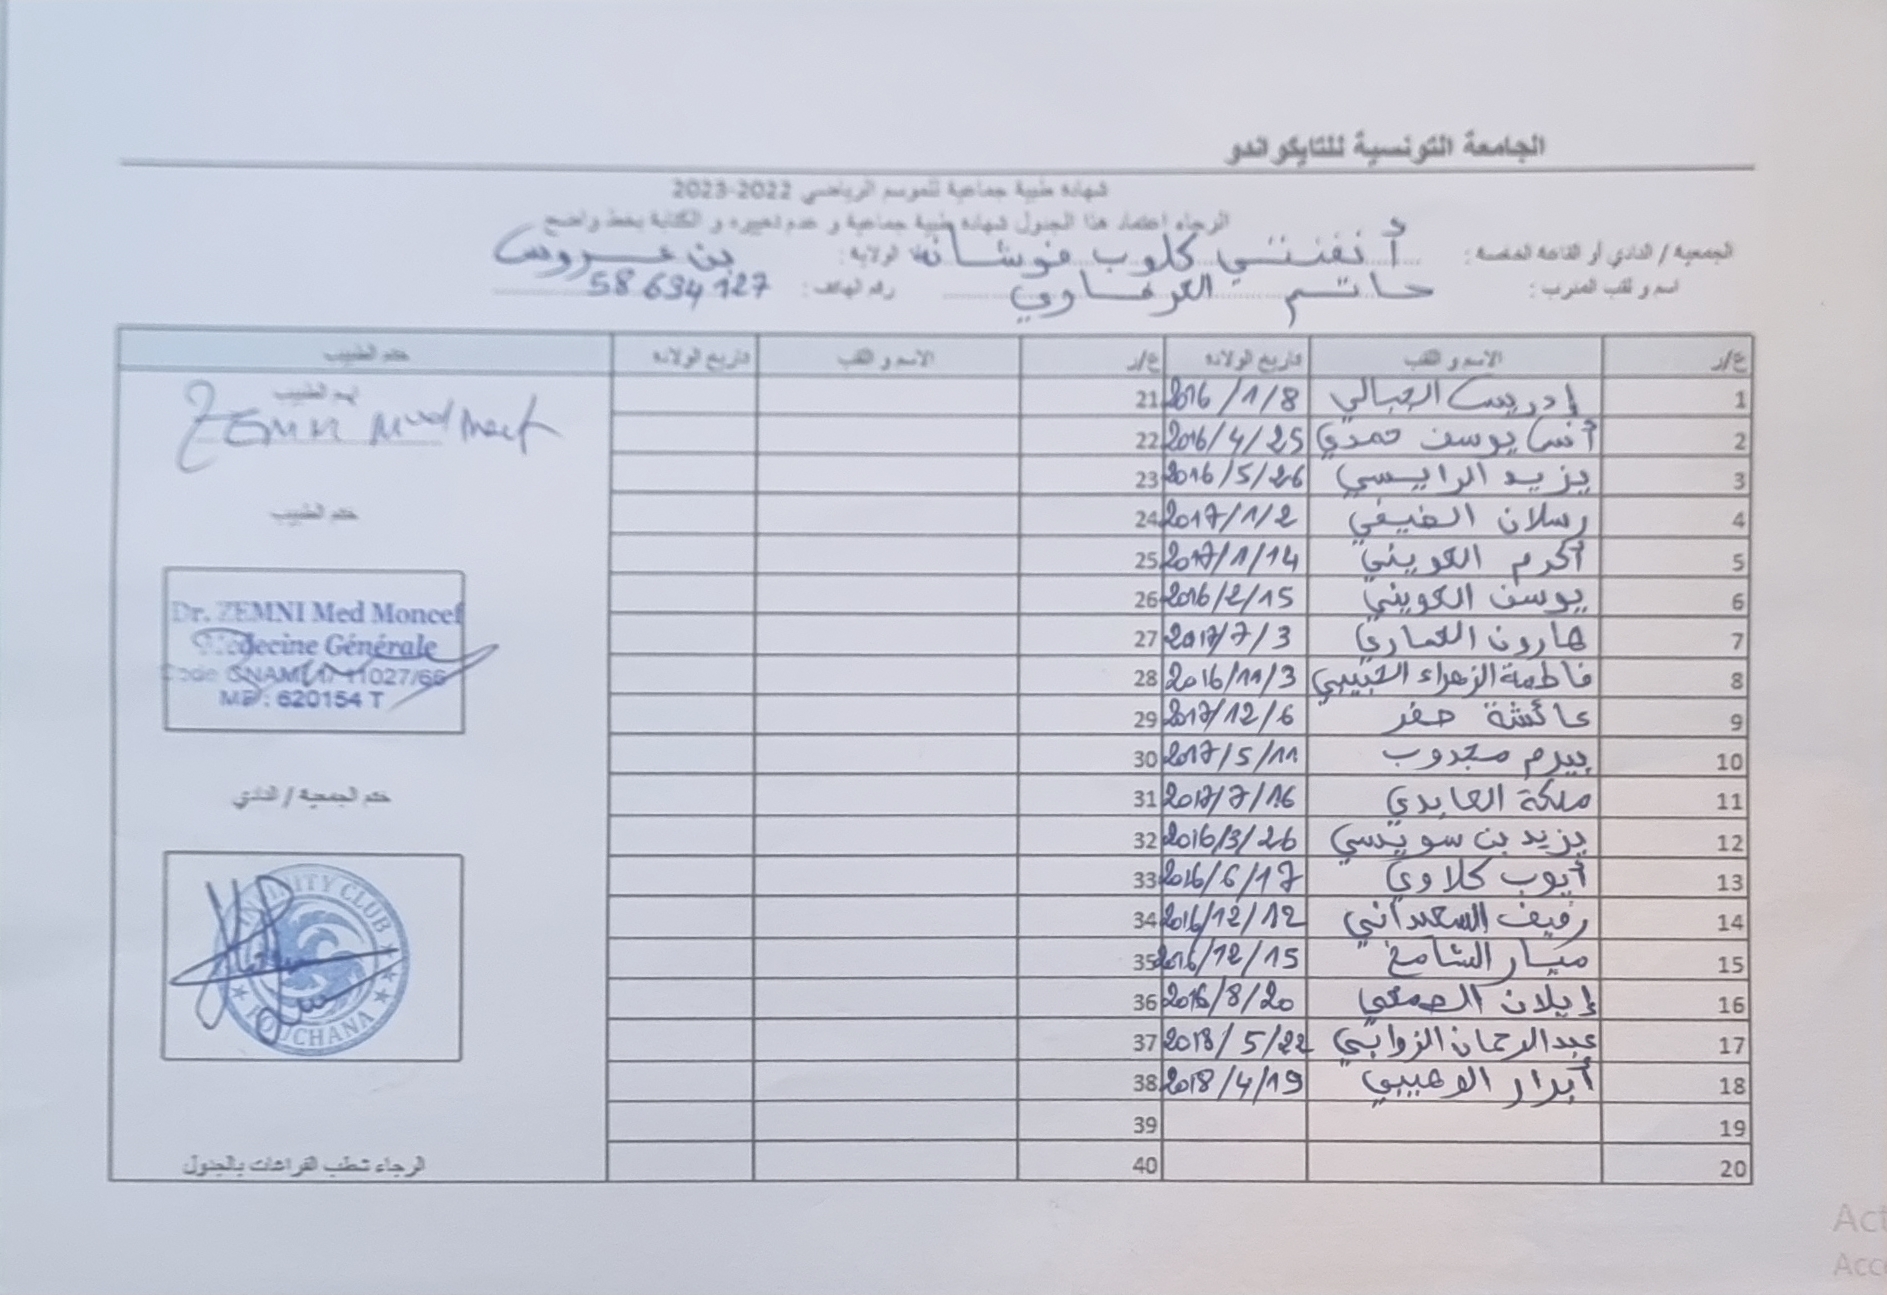 الجامعة التونسية للتايكواندو
شهادة طبية جماعية للموسم الرياضي 2022-2023
الرجاء اعتماد هذا الجدول شهادة طبية جماعية و عدم تغييره و الكتابة بخط واضح
الجمعية / النادي أو القاعة الخاصة : أنفنتي كلوب فوشانة الولاية : بن عروس
اسم و لقب المدرب : حاتم العرفاوي رقم الهاتف : 58694127
ع/ر الاسم و اللقب تاريخ الولادة ع/ر الاسم و اللقب تاريخ الولادة ختم الطبيب
1 إدريس العبالي 2016/1/8 21
2 أنس يوسف حمدي 2016/4/25 22
3 يزيد الرايسي 2016/5/26 23
4 رسلان الضيفي 2017/1/2 24
5 أكرم الكويني 2017/1/14 25
6 يوسف الكويني 2016/2/15 26
7 هارون العماري 2017/7/3 27
8 فاطمة الزهراء الحبيبي 2016/11/3 28
9 عائشة صفر 2017/12/6 29
10 بيرم مجدوب 2017/5/11 30
11 ملكة العابدي 2017/7/16 31
12 يزيد بن سويسي 2016/3/26 32
13 أيوب كلاوي 2016/6/17 33
14 رفيف السعيداني 2016/12/12 34
15 ميار الشامخ 2016/12/15 35
16 إيلان الصمعي 2016/8/20 36
17 عبد الرحمان الزوابي 2018/5/22 37
18 أبرار الاهبيبي 2018/4/19 38
19 39
20 40
اسم الطبيب
ZEMNI Med Moncef
ختم الطبيب
Dr. ZEMNI Med Moncef
Médecine Générale
Code CNAM 1/11027/66
MF: 620154 T
ختم الجمعية / النادي
INFINITY CLUB
FOUCHANA
الرجاء شطب الفراغات بالجدول
Act
Acc